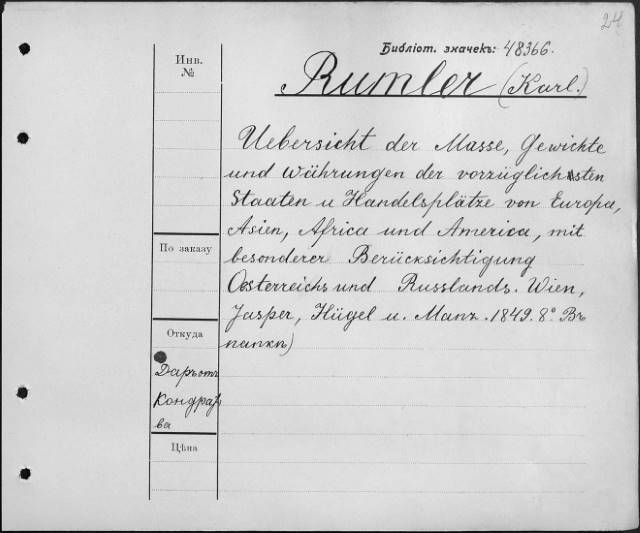 24
Библіот. значекъ: 48366.
Инв.
№
Rumler (Karl.)
Uebersicht der Masse, Gewichte
und Währungen der vorzüglichsten
Staaten u Handelsplätze von Europa,
Asien, Africa und America, mit
besonderer Berücksichtigung
Oesterreichs und Russlands. Wien,
Jasper, Hügel u. Manz. 1849. 8° Въ
папкѣ)
По заказу
Откуда
Даръ отъ
Кондрать
ва
Цѣна